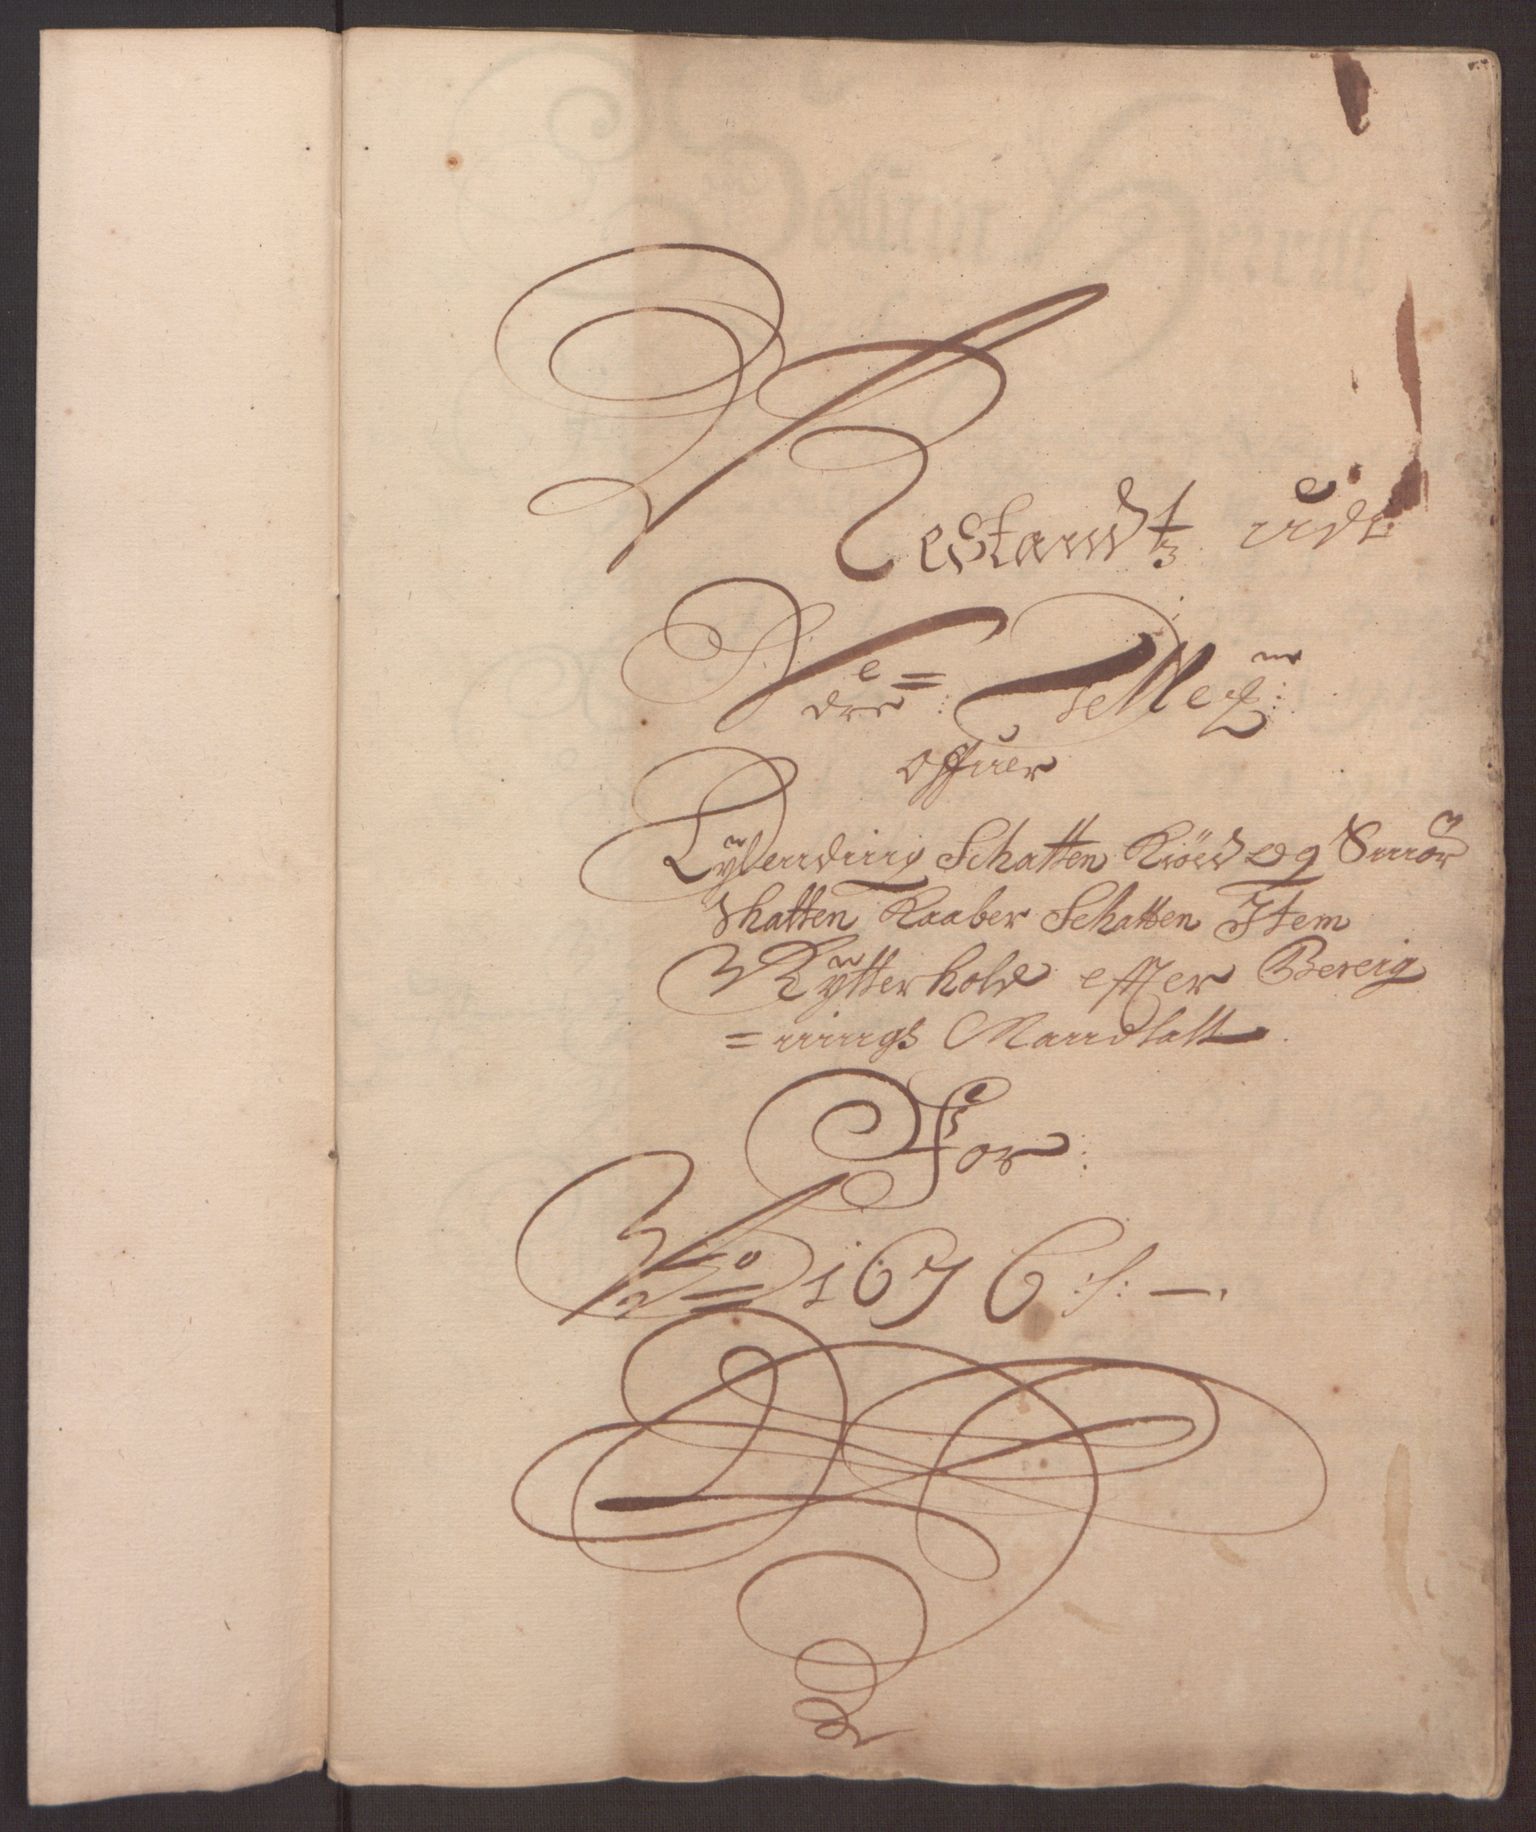 Restandtz udi
Nedre: Tellem:
offuer
Lÿtending Schatten Kiöed og Smör
skatten Kaaber Schatten Item
Rÿtterhold effter Bereig
=nings Mandtalt
For:
Ao 1676 :/: —.